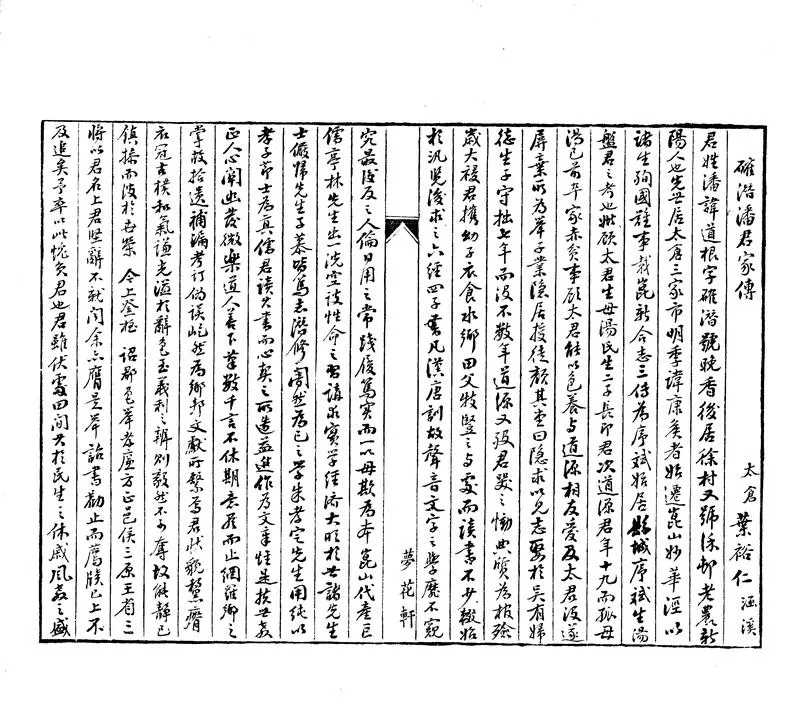 確潛潘君家傳
太倉葉裕仁涵溪
君姓潘諱道根字確潛號晚香後居徐村又號徐邨老農新
陽人也先世居太倉三家市明季諱康矦者始遷崑山妙華涇以
諸生殉國難事載崑新合志三傳為序斌始居縣城序斌生湯
盤君之考也妣顧太君生母湯氏生二子長即君次道源君年十九而孤母
湯已前卒家赤貧事顧太君能以色養與道源相友愛及太君沒遂
屏棄所為舉子業隱居授徒顏其堂曰隱求以見志娶於吳有婦
德生子守拙七年而沒不數年道源又歿君哭之慟典質為棺殮
歲大祲君攜幼子衣食水鄉田父牧豎之與處而讀書不少輟始
於汎覽後求之六經四子書凡漢唐訓故聲音文字之學靡不窺
夢花軒
究最後反之人倫日用之常踐履篤實而一以毋欺為本崑山代產巨
儒亭林先生出一洗空談性命之習講求實學經濟大明於世諸先生
士儼歸先生子慕皆篤志潛修闇然為己之學朱孝定先生用純以
孝子節士為真儒君讀其書而心契之所造益進作為文章惟是扶世教
正人心闡幽發微樂道人善下筆數千言不休期意盡而止網羅鄉之
掌故拾遺補漏考訂偽誤屹然為鄉邦文獻所繫焉君狀貌犛癯
衣冠古樸和氣謙光溢於辭色至義利之辨則毅然不少奪故能靜己
鎮擾而波於邑巖今上登極詔郡邑舉孝廉方正邑侯三原王省三
將以君名上君堅辭不就問余亦膺是舉詒書勸止而薦牘已上不
及追矣予卒以此愧負君也君雖伏處田間其於民生之休戚風教之盛